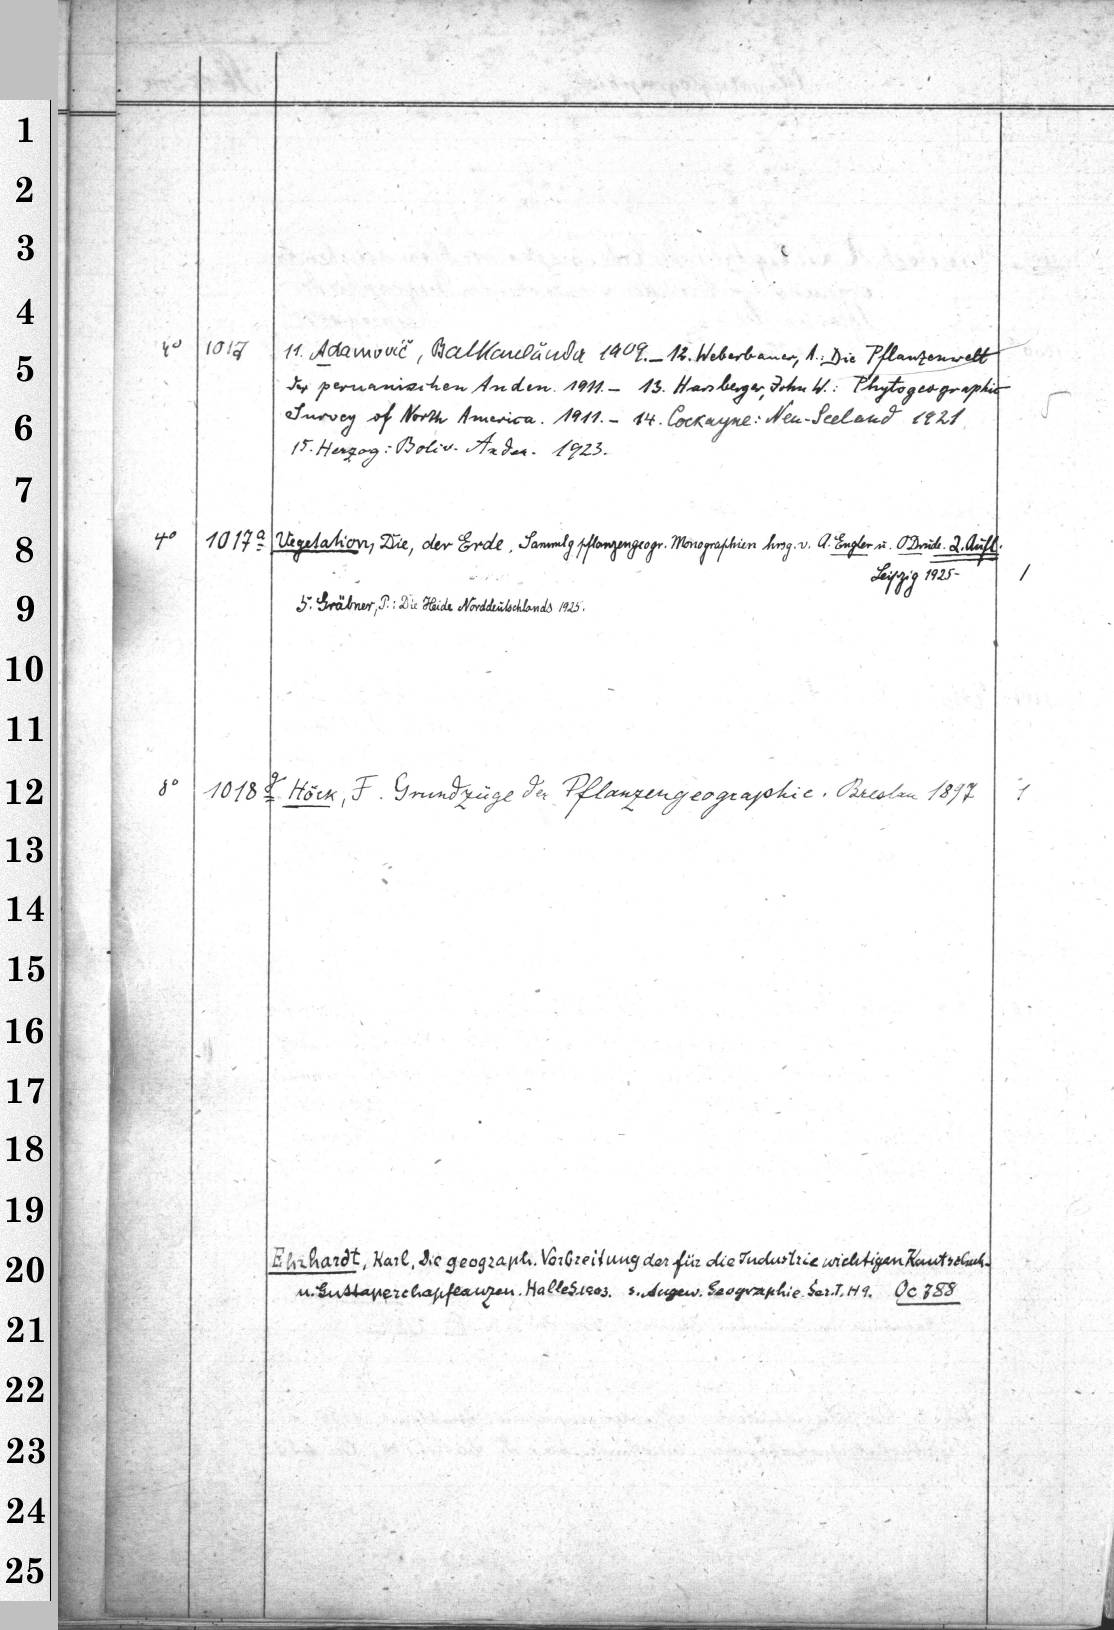 1
2
3
4
4° 1017 11. Adamovič, Balkanländer 1909. – 12. Weberbauer, A.: Die Pflanzenwelt
5
der peruanischen Anden. 1911. – 13. Harsberger, John W.: Phytogeographic
Survey of North America. 1911. – 14. Cockayne: Neu-Seeland 1921. 5
6
15. Herzog: Boliv. Anden. 1923.
7
8 4° 1017a Vegetation, Die, der Erde. Sammlg pflanzengeogr. Monographien hrsg. v. A. Engler u. O Drude. 2. Aufl.
Leipzig 1925- 1
9 5. Gräbner, P.: Die Heide Norddeutschlands 1925.
10
11
12 8° 1018g Höck, F. Grundzüge der Pflanzengeographie. Breslau 1897 1
13
14
15
16
17
18
19
Ehrhardt, Karl, Die geograph. Verbreitung der für die Industrie wichtigen Kautschuk-
20
u. Guttaperchapflanzen. Halle S. 1903. s. Angew. Geographie. Ser. I, H 9. Oc 788
21
22
23
24
25